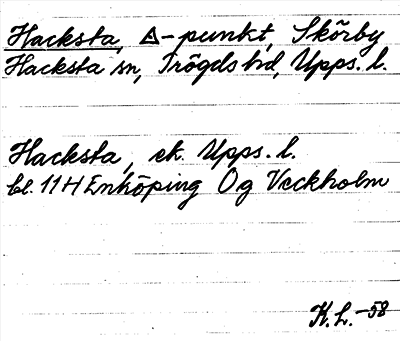 Hacksta, △-punkt, Skörby
Hacksta sn, Trögds hd, Upps. l.
Hacksta, ek. Upps. l.
bl. 11 H Enköping Og Veckholm
K. L. -58